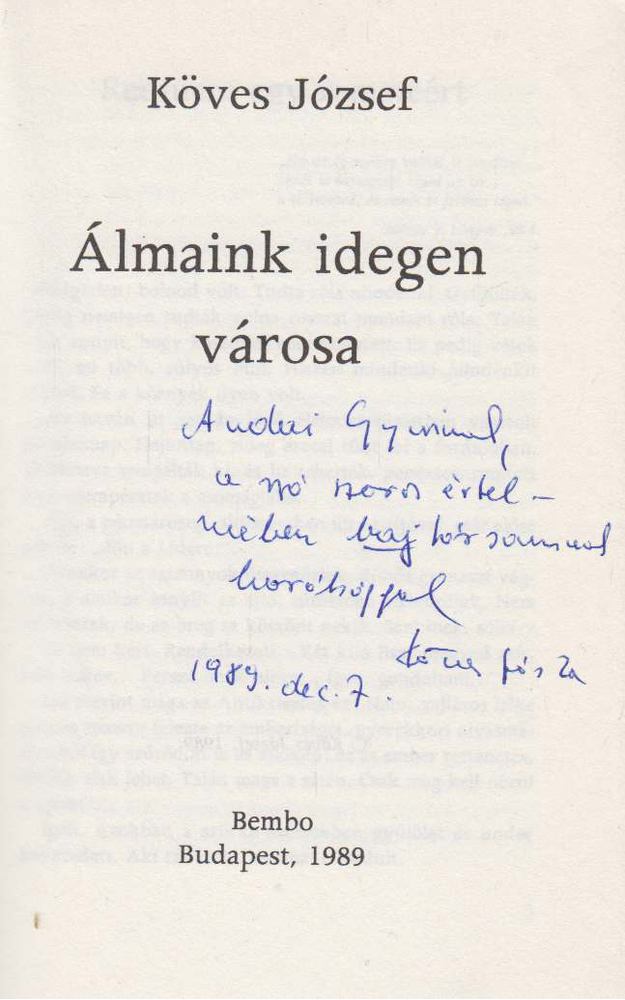 Köves József
Álmaink idegen
városa
Andai Gyurinak,
a szó szoros értel-
mében bajtársamnak
barátsággal
Köves Józsa
1989. dec. 7.
Bembo
Budapest, 1989